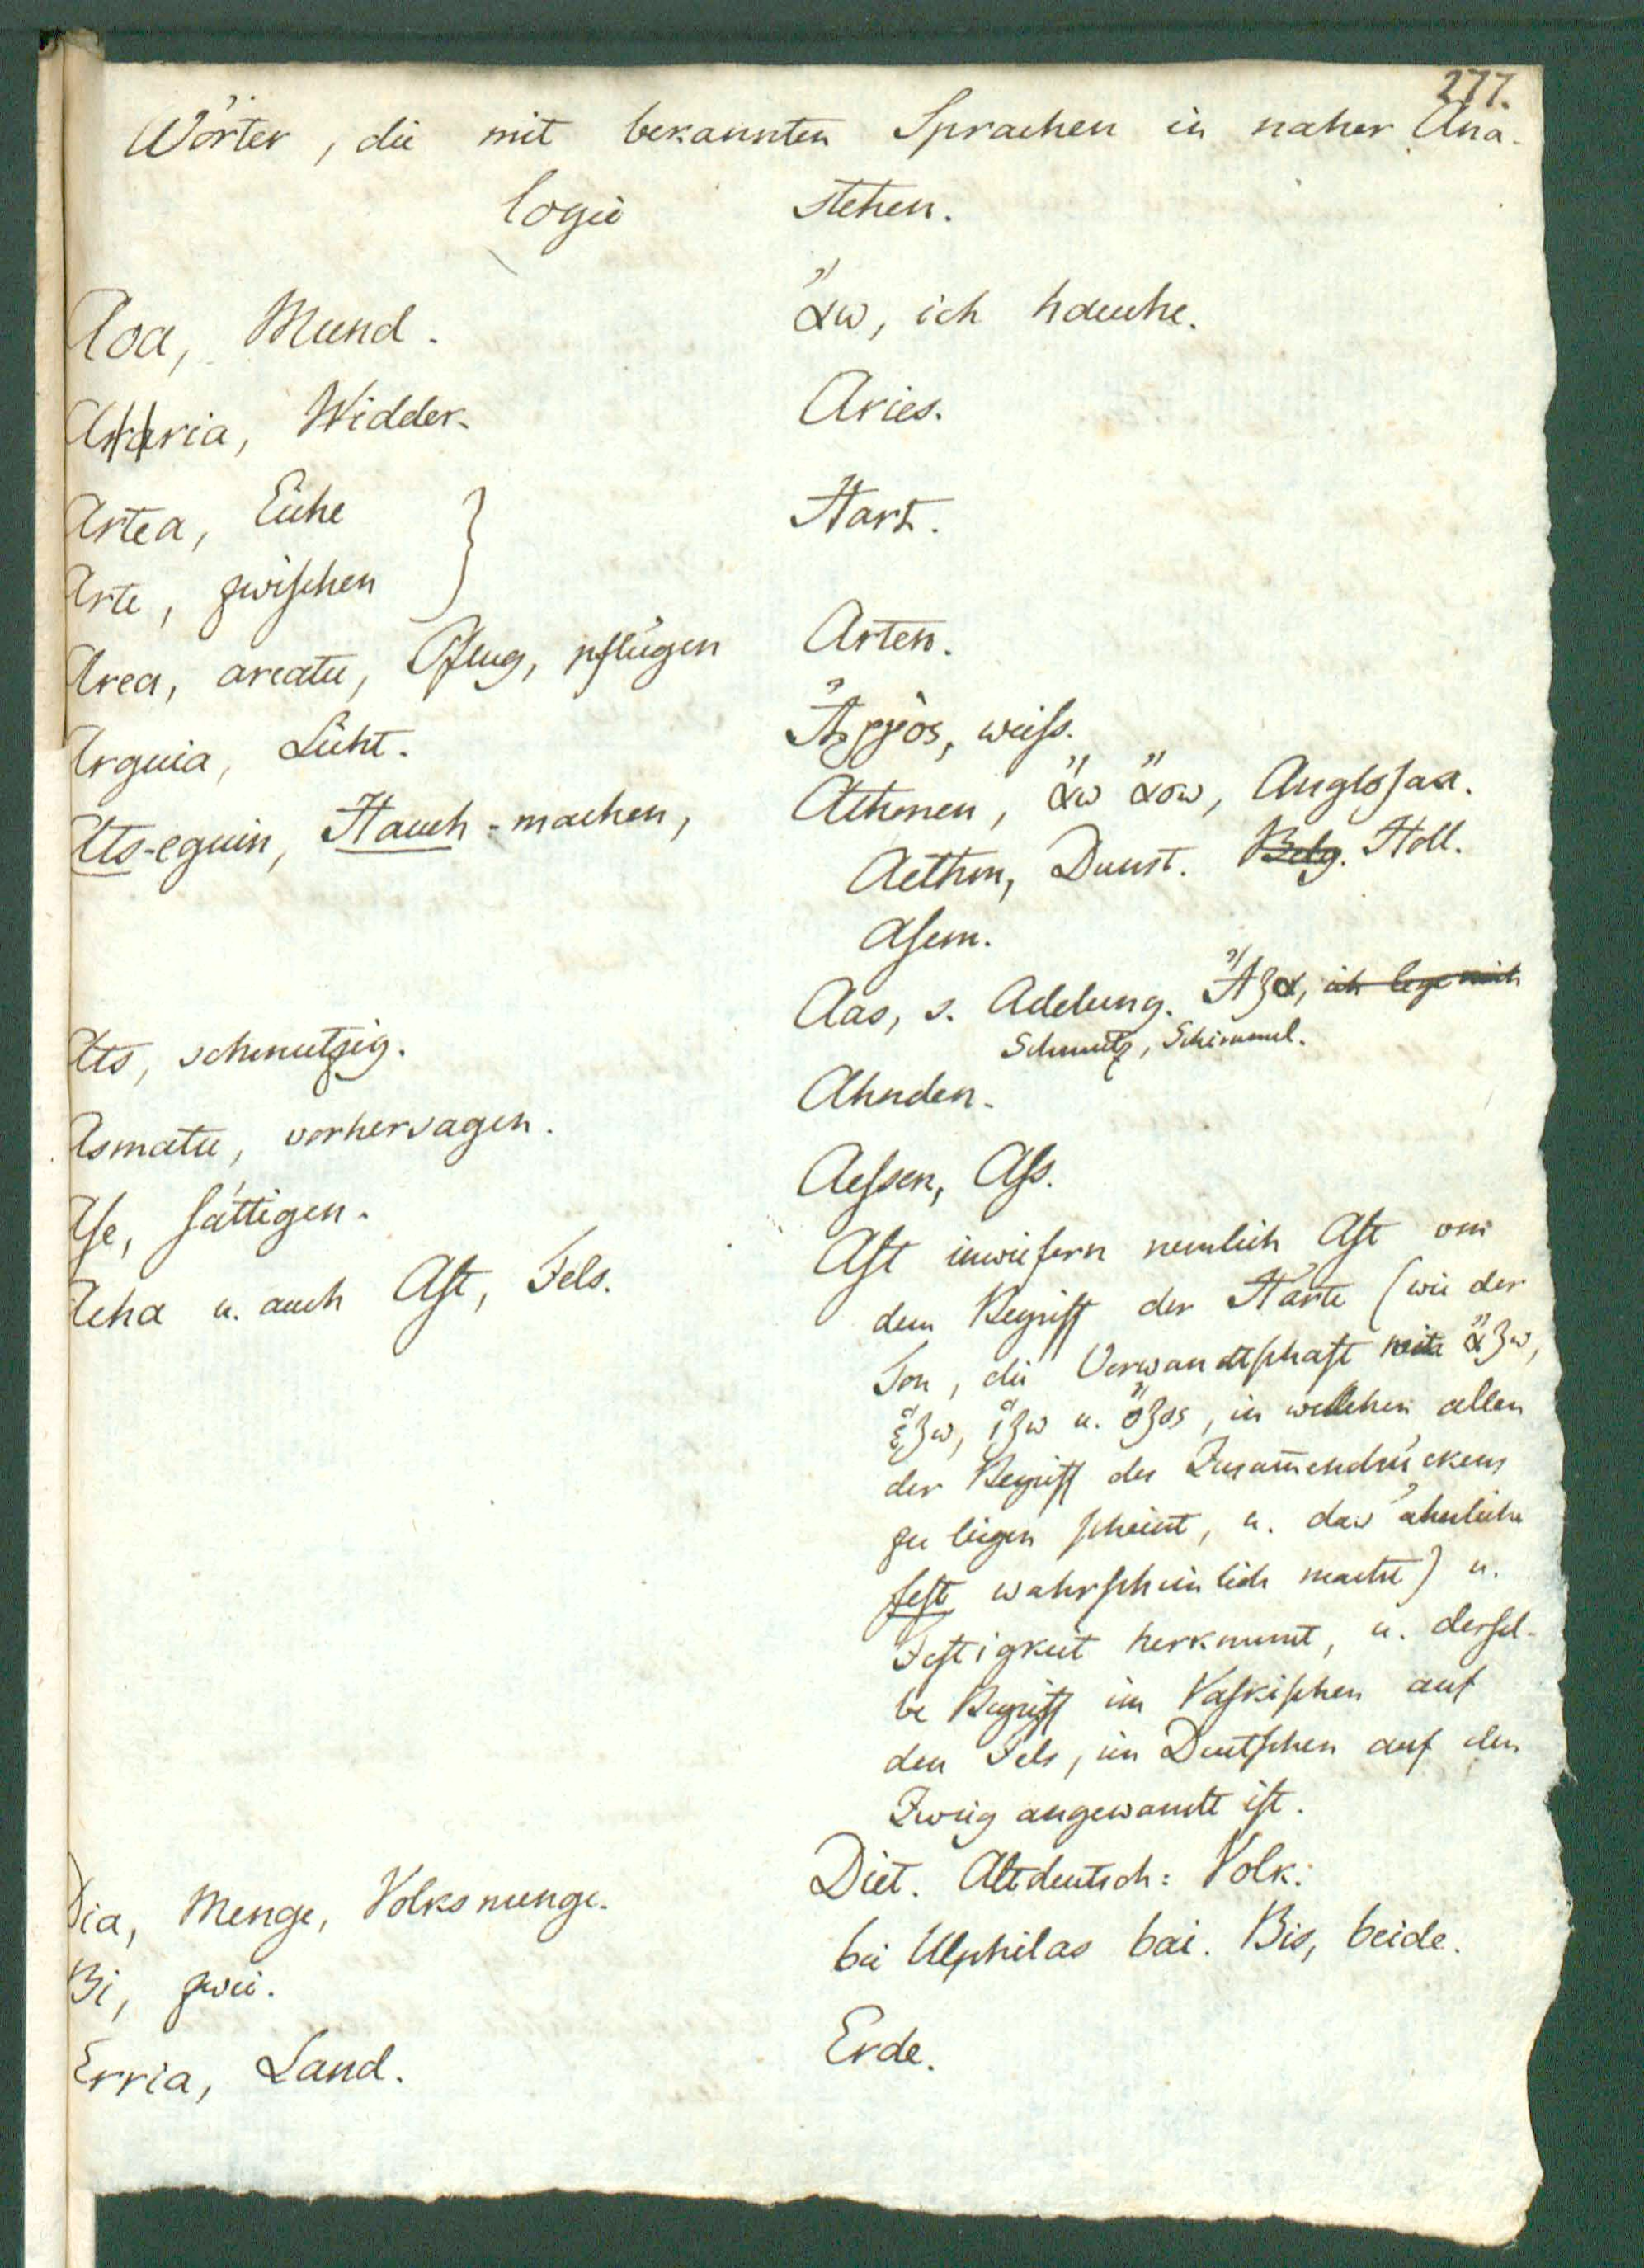 277.
Wörter, die mit bekannten Sprachen in naher Ana-
logie stehen.
Aoa, Mund. ἄω, ich hauche.
Aharia, Widder. Aries.
Artea, Eiche Hart.
Arte, zwischen
Area, areatu, Pflug, pflügen Arten.
Arguia, Licht. Ἀργὸς, weiſs.
Ats-eguin, Hauch-machen, Athmen, ἄω ἄοω, Angloſax.
Aethm, Dunst. Belg. Holl.
Aſem.
Ats, schmutzig. Aas, s. Adelung. Ἄζα, ich lege mich
Schmutz, Schimmel.
Asmatu, vorhersagen. Ahnden.
Aſe, ſättigen. Aeſsen, Aſs.
Acha u. auch Aſt, Fels. Aſt inwiefern nemlich Aſt von
dem Begriff der Härte (wie der
Ton, die Verwandtſchaft mit ἄζω,
ἕζω, ἵζω u. ὄζος, in welchen allen
der Begriff des Zusam̅endrückens
zu liegen ſcheint, u. das ähnliche
feſt wahrſcheinlich macht) u.
Feſtigkeit herkommt, u. derſel-
be Begriff im Vaſkiſchen auf
den Fels, im Deutſchen auf den
Zweig angewandt iſt.
Dia, Menge, Volksmenge. Diet. Altdeutsch: Volk.
Bi, zwei. bei Ulphilas bai. Bis, beide.
Erria, Land. Erde.